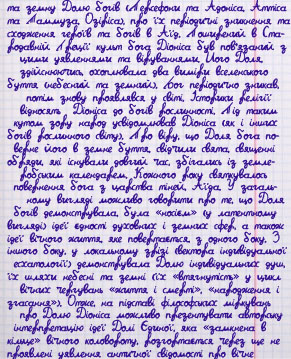 та земну Долю богів (Персефони та Адоніса, Аттіса
та Таммуза, Озіріса), про їх періодичні зникнення та
сходження героїв та богів в Аїд. Поширений в Ста-
родавній Греції культ бога Діоніса був пов'язаний з
цими уявленнями та віруваннями. Його Доля,
здійснюючись, охоплювала два виміри вселенського
буття (небесний та земний). Бог періодично зникав,
потім знову проявлявся у світі. Історики релігії
відносять Діоніса до богів рослинності. Під таким
кутом зору народ усвідомлював Діоніса (як і інших
богів рослинного світу). Про віру, що Доля бога по-
верне його в земне буття, свідчили свята, священні
обряди, які існували довгий час, збігались із земле-
робським календарем. Кожного року святкувалось
повернення бога з царства тіней, Аїда. У загаль-
ному вигляді можливо говорити про те, що Доля
богів демонструвала, була «носієм» (у латентному
вигляді) ідеї єдності духовних і земних сфер, а також
ідеї вічного життя, яке повертається з одного боку. З
іншого боку, у локальному зрізі (вектора індивідуальної
есхатології) демонструвала Долю індивідуальних душ,
їх шляхи небесні та земні (їх «втягнутість» у цикли
вічних чергувань «життя і смерті», «народження і
згасання»). Отже, на підставі філософських міркувань
про Долю Діоніса можливо презентувати авторську
інтерпретацію ідеї Долі Єдиної, яка «замкнена в
кільце» вічного коловороту, розгортається через ще не
проявлені уявлення античної свідомості про вічне